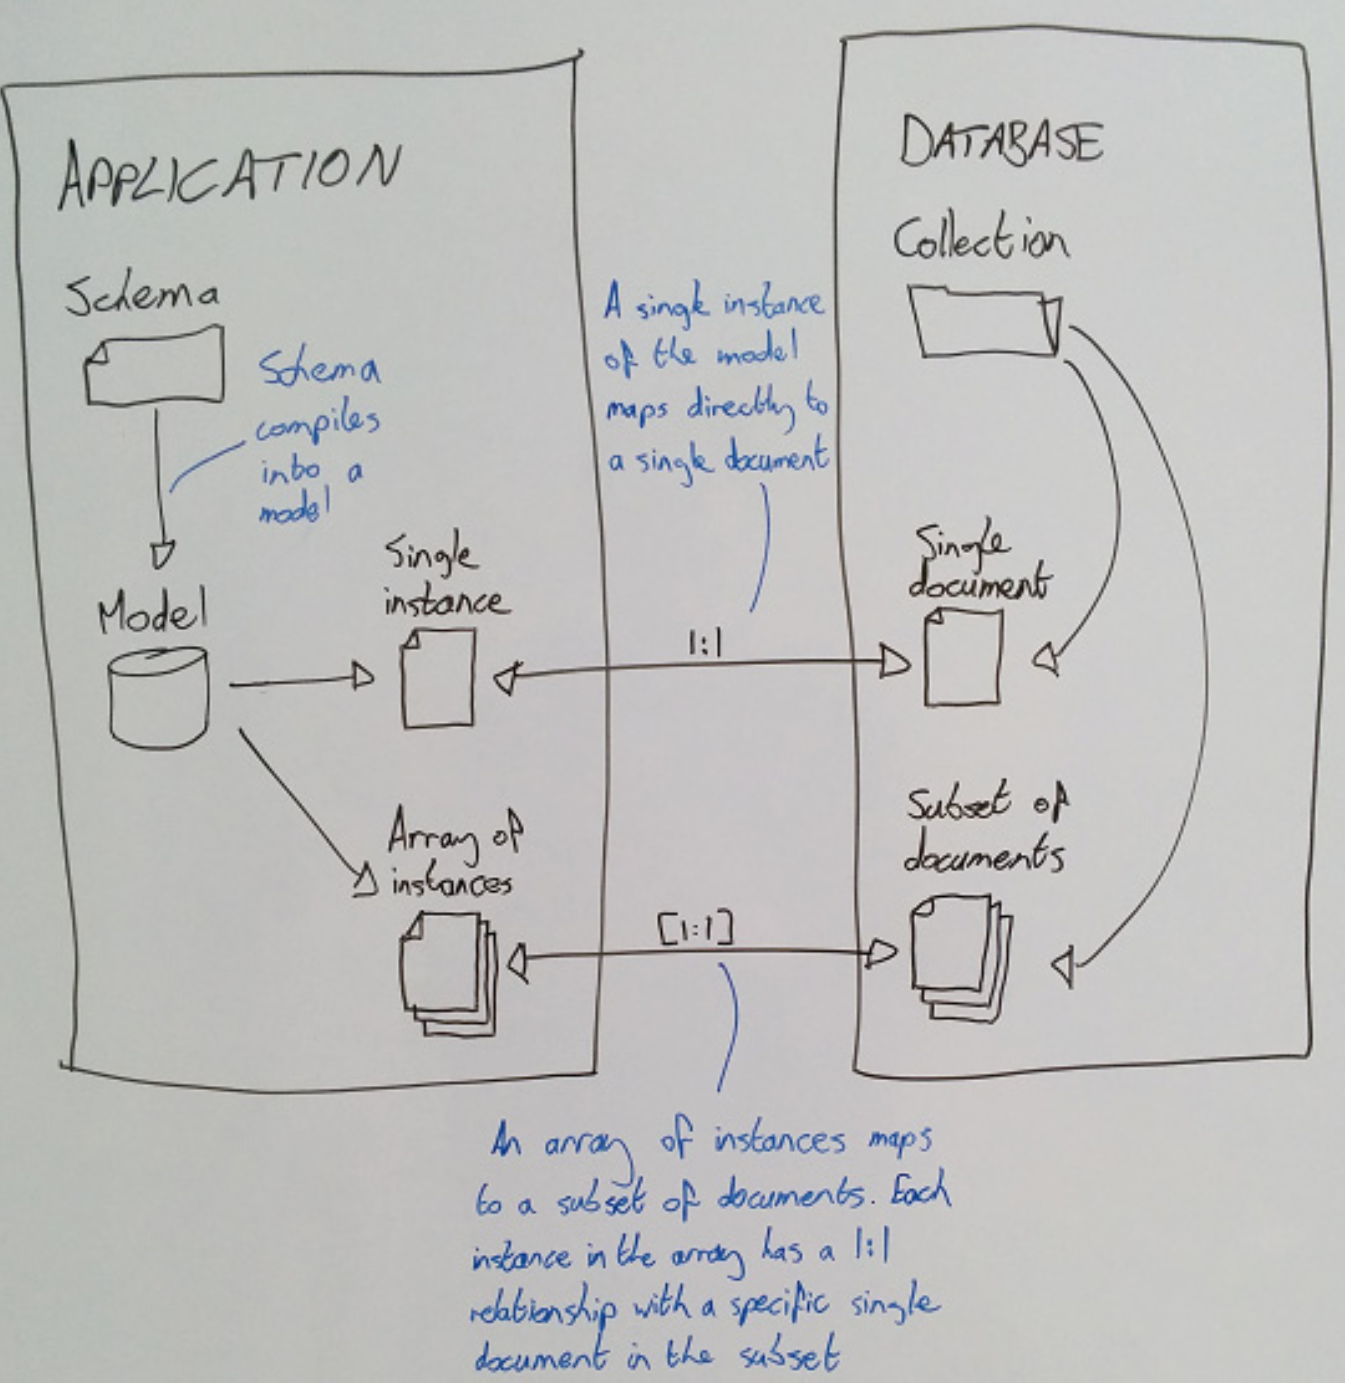 APPLICATION
Schema
Schema
compiles
into a
model
Model
Single
instance
Array of
instances
A single instance
of the model
maps directly to
a single document
1:1
[1:1]
DATABASE
Collection
Single
document
Subset of
documents
An array of instances maps
to a subset of documents. Each
instance in the array has a 1:1
relationship with a specific single
document in the subset